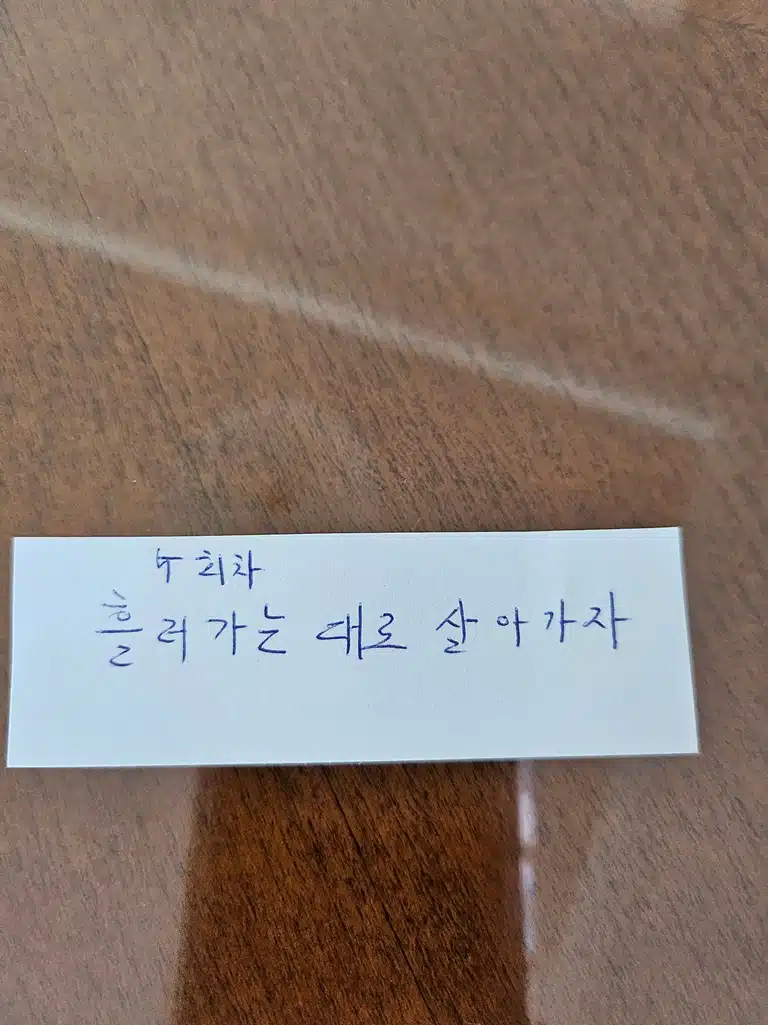 수회차
흘러가는 대로 살아가자